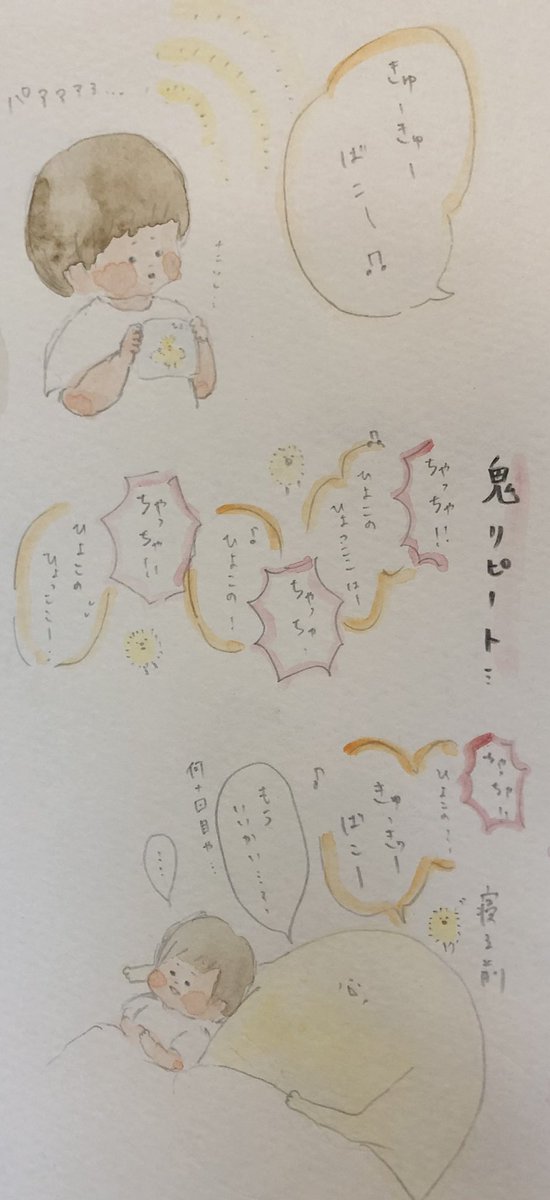 きゅーきゅー
ばこー♫
パァァァァ…
鬼リピート…
ちゃっちゃ!!
ひよこの
ひょっここはー
ちゃっちゃ、
ひよこの!
ちゃっちゃ!!
ひよこの
ひょっここー!
寝る前
ちゃっちゃ!!
ひよこのー、
きゅっきゅー
ばこー
もう
いいかい…?
何十回目や…
…